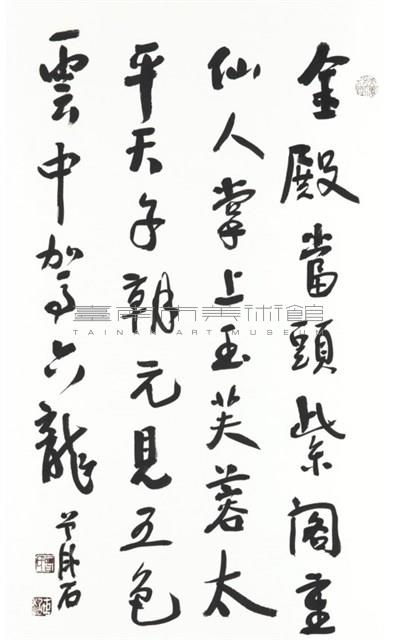 金殿當頭紫閣重
仙人掌上玉芙蓉太
平天子朝元見五色
雲中駕六龍
臺南市美術館
TAINAN ART MUSEUM